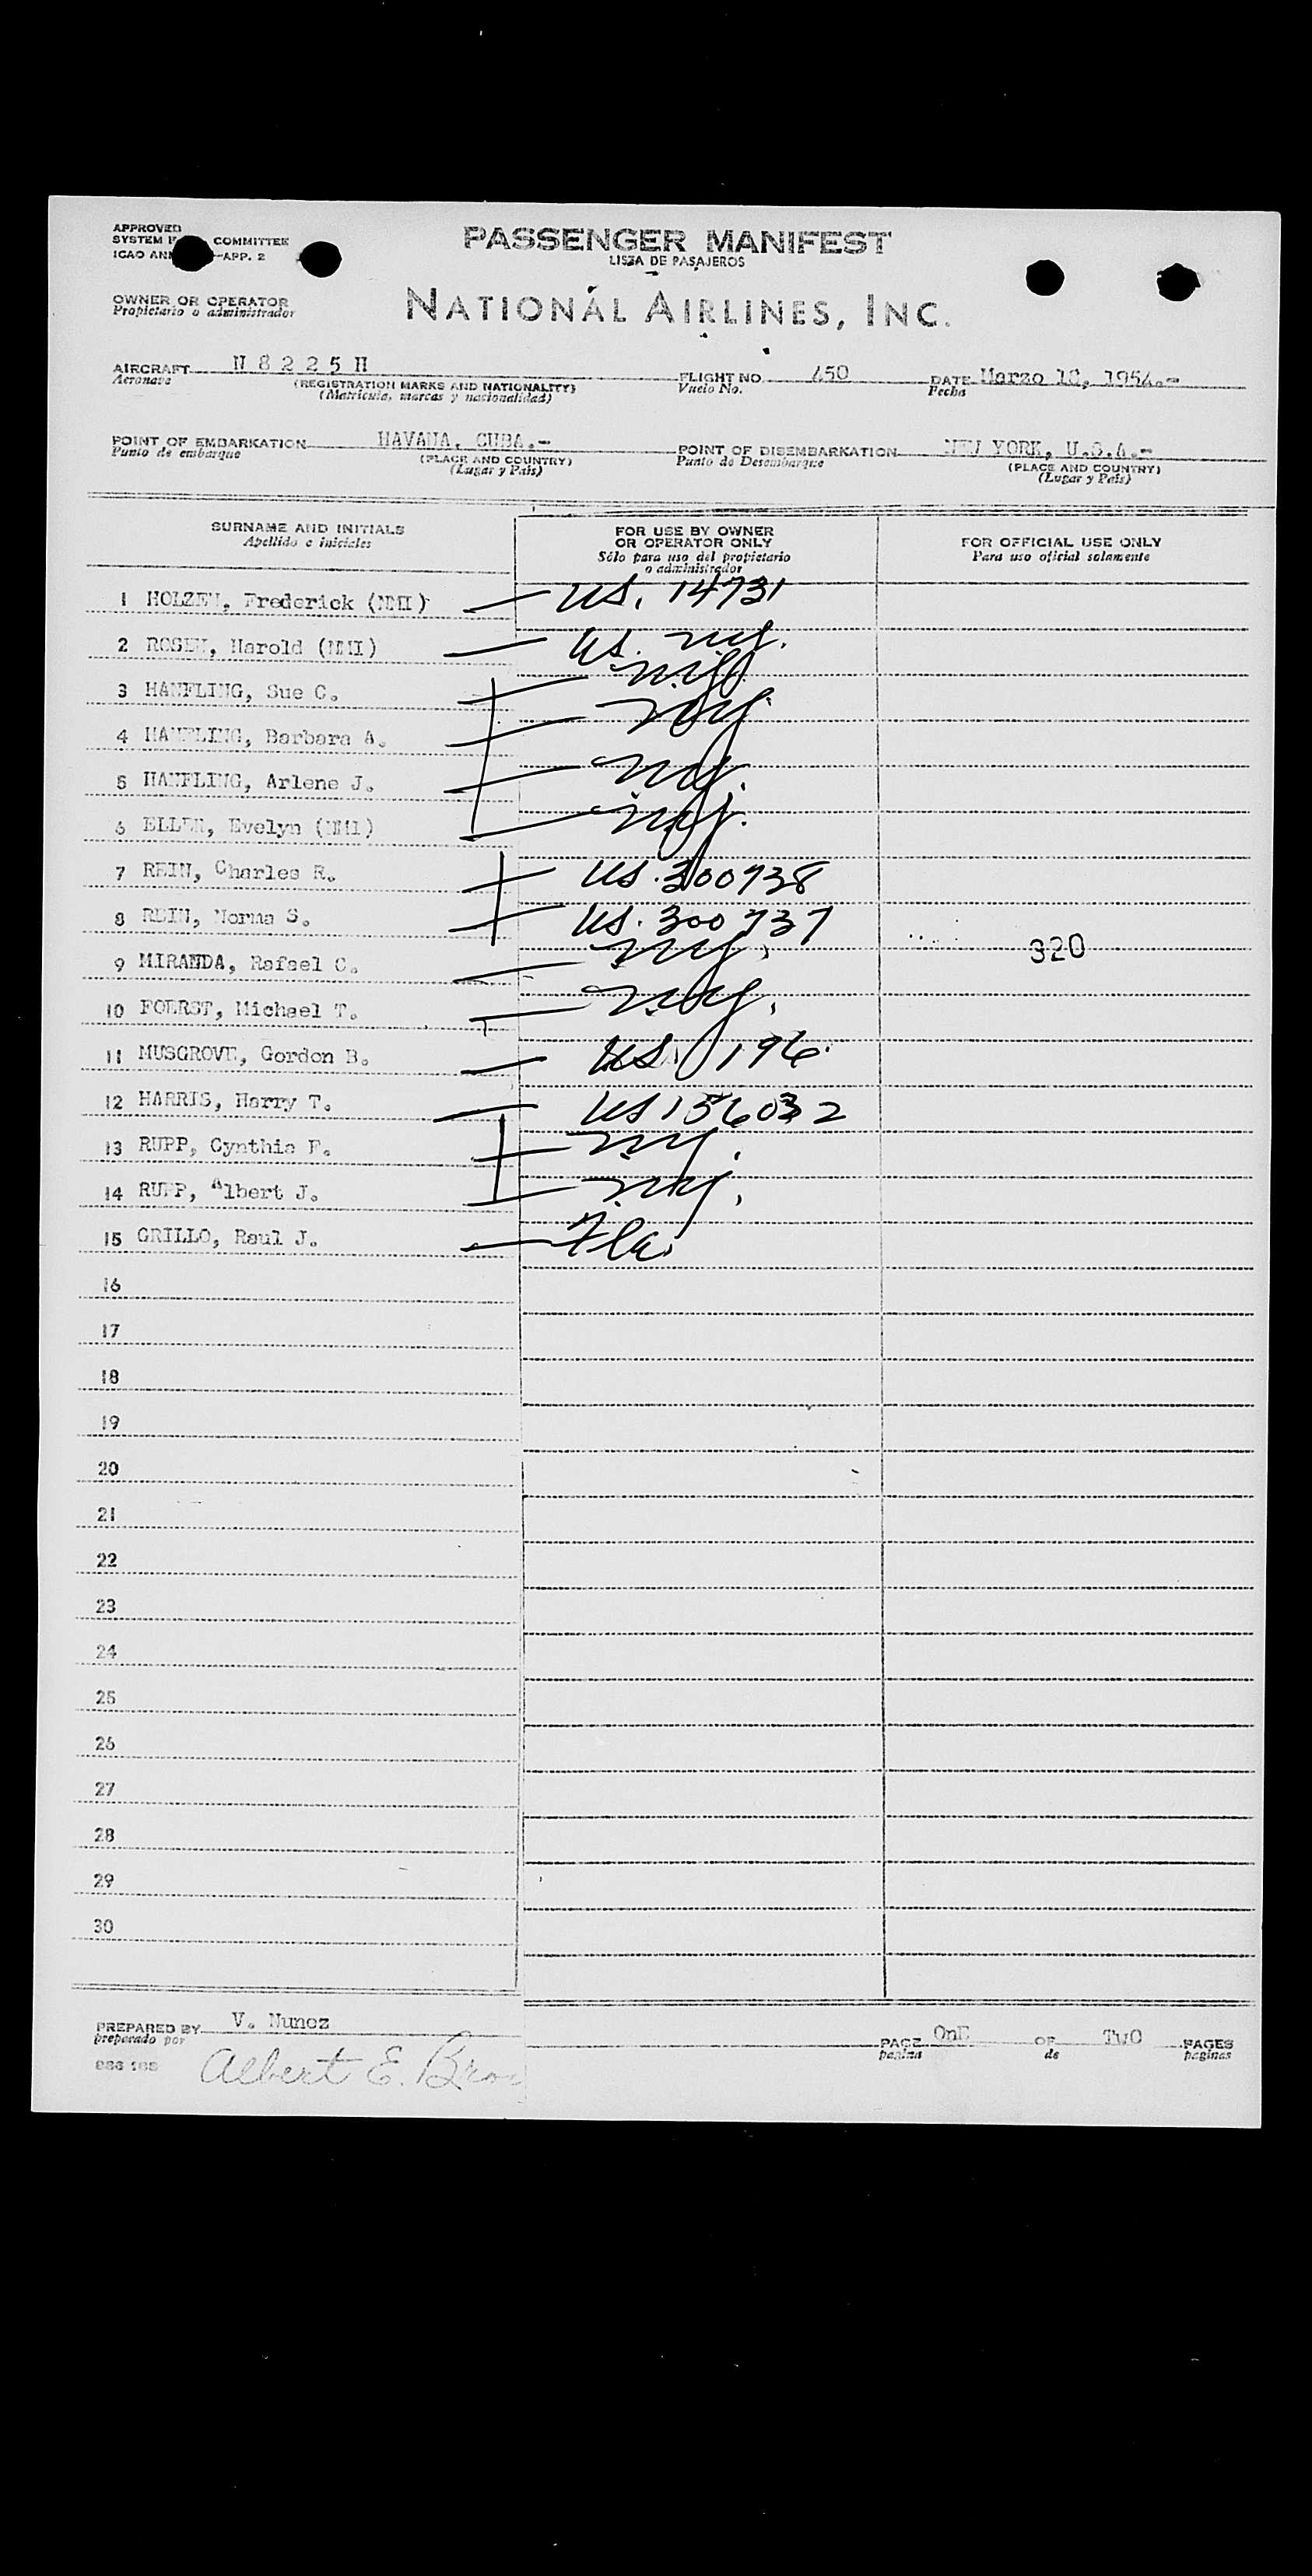 APPROVED
SYSTEM COMMITTEE
ICAO APP. 2
PASSENGER MANIFEST
LISTA DE PASAJEROS
OWNER OR OPERATOR
Propietario o administrador
NATIONAL AIRLINES, INC.
AIRCRAFT N 8 2 2 5 H FLIGHT NO. 450 DATE Marzo 1954.-
Aeronave (REGISTRATION MARKS AND NATIONALITY) Vuelo No. Fecha
(Matricula, marcas y nacionalidad)
POINT OF EMBARKATION HAVANA, CUBA.- POINT OF DISEMBARKATION NEW YORK, U.S.A.-
Punto de embarque (PLACE AND COUNTRY) Punto de Desembarque (PLACE AND COUNTRY)
(Lugar y País) (Lugar y País)
SURNAME AND INITIALS FOR USE BY OWNER OR OPERATOR ONLY FOR OFFICIAL USE ONLY
Apellido e iniciales Sólo para uso del propietario o administrador Para uso oficial solamente
1 HOLZEN, Frederick (NMI) US. 14731
2 ROSEN, Harold (NMI) US. n.y.
3 HANFLING, Sue C.
4 HANFLING, Barbara A. n.y.
5 HANFLING, Arlene J. n.y.
6 ELLEN, Evelyn (NMI)
7 REIN, Charles R. US. 300738
8 REIN, Norma S. US. 300737
9 MIRANDA, Rafael C. n.y. 320
10 FOERST, Michael T.
11 MUSGROVE, Gordon B. US. 196
12 HARRIS, Harry T. US 156032
13 RUPP, Cynthia F. n.y.
14 RUPP, Albert J. n.y.
15 GRILLO, Raul J. Fla.
16
17
18
19
20
21
22
23
24
25
26
27
28
29
30
PREPARED BY V. Nunez PAGE OnE OF TwO PAGES
preparado por pagina de paginas
Albert E.